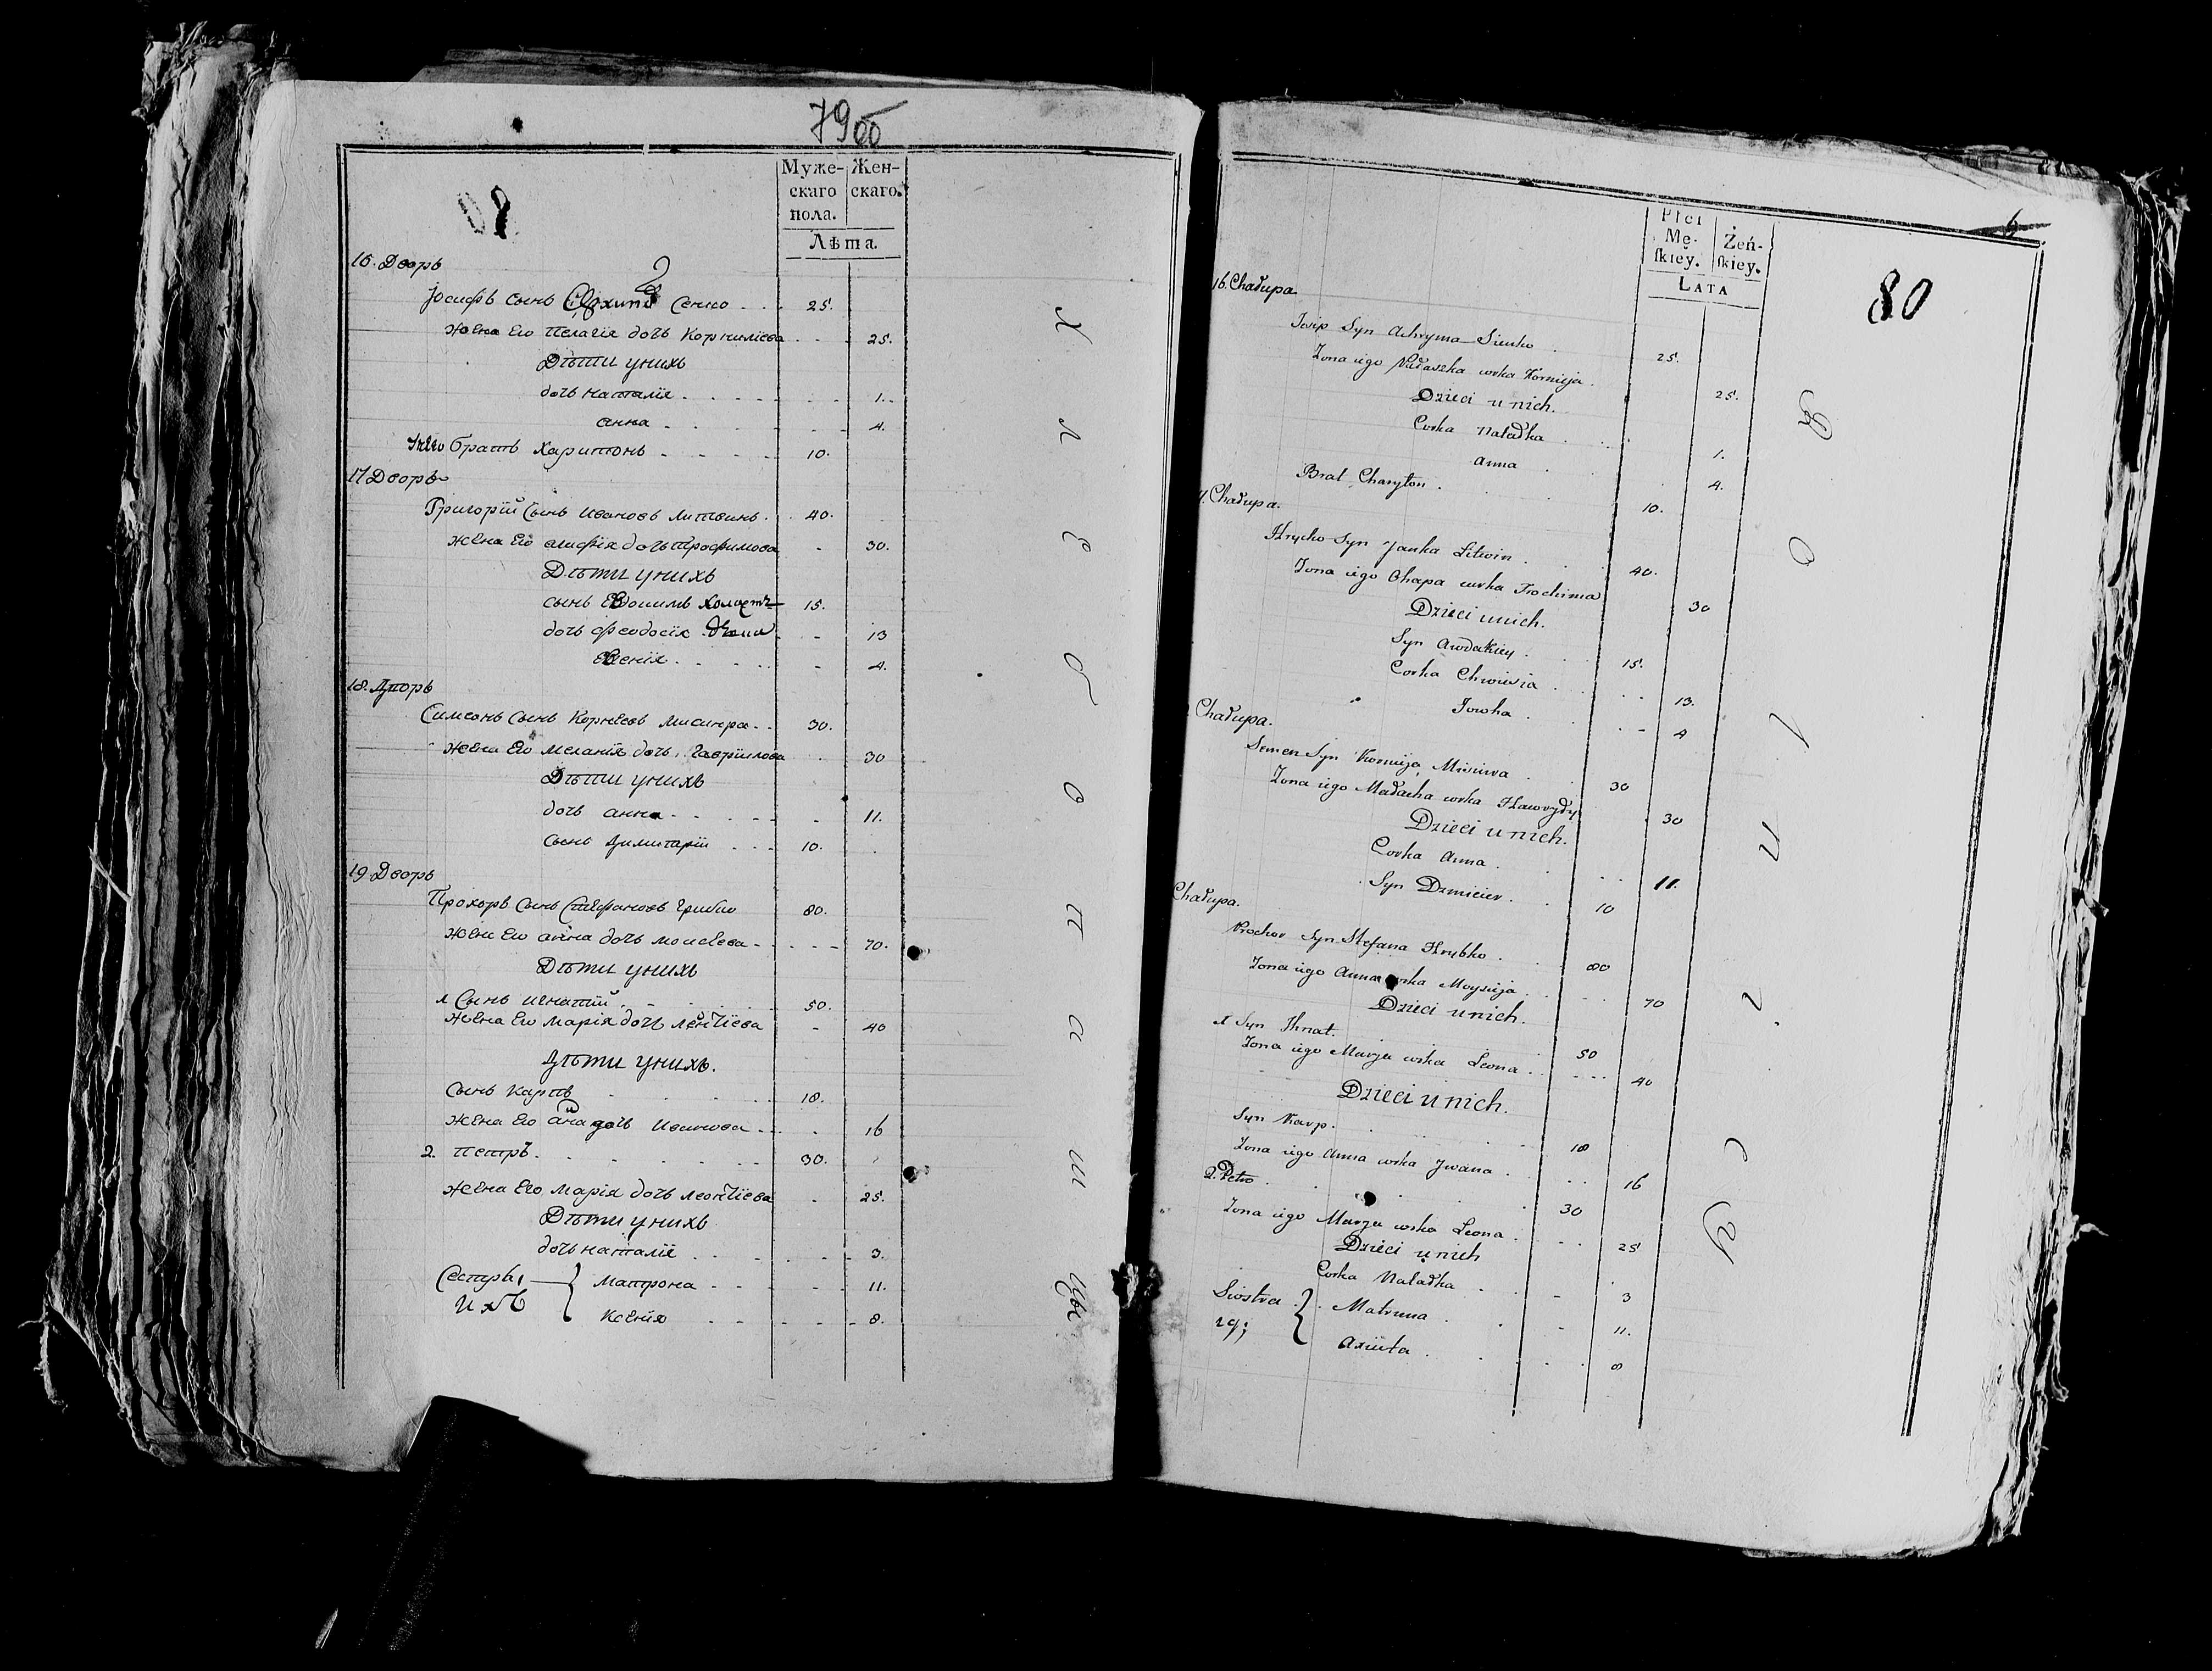 79об
Муже-
скаго
пола.
Жен-
скаго.
Лѣта.
16. Дворъ
Іосифъ сынъ Сенко 25.
жена Его Пелагія дочь Корниліева 25.
Дѣти унихъ
дочь наталія 1.
анна 4.
Братъ Харитонъ 10.
17 Дворъ
Григорій Сынъ Ивановъ Литвинъ. 40.
жена Его агафія дочь Трофимова 30.
Дѣти унихъ
сынъ Евдокимъ холастъ 15.
дочь феодосія 13
Евгенія 4.
18. Дворъ
Симеонъ Сынъ Корнеевъ Мисиюра 30.
жена Его меланія дочь Гавріилова 30
Дѣти унихъ
дочь анна 11.
Сынъ Димитрій 10.
19 Дворъ
Прохоръ Сынъ Стефановъ Грибко 80.
жена Его анна дочь моисеева 70.
Дѣти унихъ
1 Сынъ игнатій 50.
жена Его марія дочь леонтіева 40
Дѣти унихъ.
Сынъ Карпъ 18.
жена Его дочь Иванова 16
2. петръ 30.
жена Его марія дочь леонтіева 25.
Дѣти унихъ
дочь наталія 3.
Сестры Матрона 11.
ихъ Ксенія 8.
Х л е б о п а ш ц ы
Płci
Mę-
ſkiey.
Żeń-
ſkiey.
LATA
80
16. Chałupa
Josip Syn Achryma Sienko 25.
Zona iego Pałaszka corka Kornieja 25.
Dzieci u nich.
Corka Naladka 1.
Anna 4.
Brat Charyton 10.
7. Chałupa.
Hrycko Syn Janka Litwin 40.
Zona iego Ahapa corka Trochima 30
Dzieci unich.
Syn Awdakiey 15.
Corka Chwiesia 13.
Jowha 4
Chałupa.
Semen Syn Kornieja Misiura 30
Zona iego Małacha corka Hawryły 30
Dzieci u nich.
Corka Anna 11.
Syn Dzmicier 10
Chałupa.
Prochor Syn Stefana Hrybko 80
Zona iego Anna corka Moysieja 70
Dzieci unich.
1 Syn Ihnat. 50
Zona iego Marja corka Leona 40
Dzieci u nich.
Syn Karp. 18
Zona iego Anna corka Jwana 16
2. Petro 30
Zona iego Marja corka Leona 25
Dzieci u nich
Corka Naladka 3
Siostra Matruna 11.
Axiuta 8
R o l n i c y